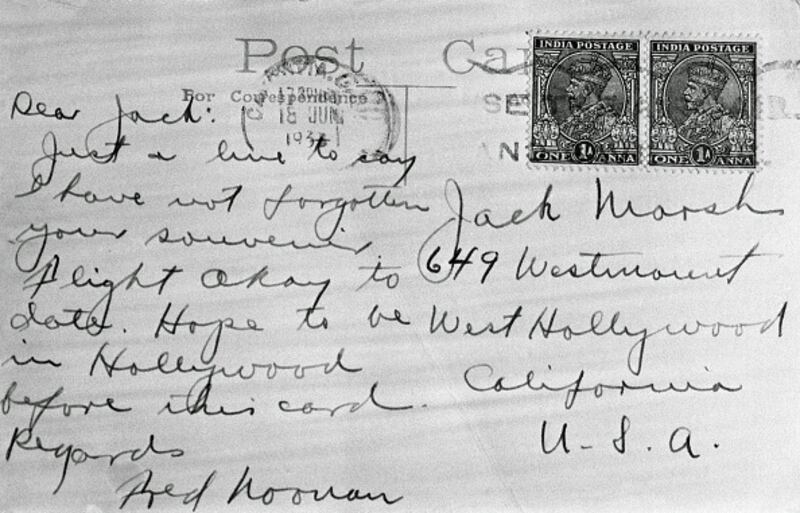 Post
INDIA POSTAGE
ONE 1A ANNA
INDIA POSTAGE
ONE 1A ANNA
For Correspondence
18 JUN
Dear Jack:
Just a line to say
I have not forgotten
your souvenir.
Flight okay to
date. Hope to be
in Hollywood
before this card.
Regards
Fred Noonan
Jack Marsh
649 Westmount
West Hollywood
California
U.S.A.